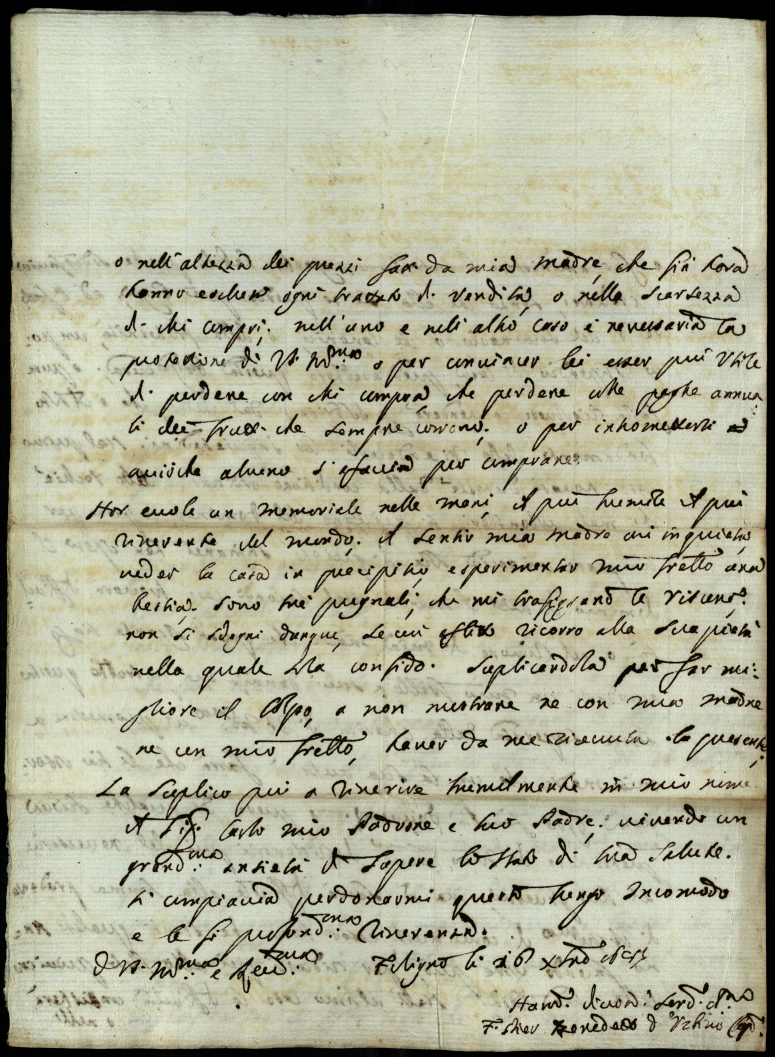 o nell'altezza dei prezzi da mia madre, che sin hora
hanno escluso ogni trattato di vendita, o nella scarsezza
di chi compri; nell'uno e nell'altro caso è necessaria la
protettione di V.S. Ill.ma o per convincer lei esser più utile
di perdere con chi compra, che perdere colle paghe annua
li dei frutti che sempre corrono; o per
acciò che almeno si per comprare.
Hor eccole un memoriale nelle mani, il più humile il più
riverente del mondo. il sentir mia madre così inquieta,
veder la casa in precipitio, esperimentar mio fratello una
bestia, sono tre pugnali, che mi trafiggono le viscere.
non si sdegni dunque, se così ricorro alla sua pietà
nella quale confido. suplicandola per far mi:
gliore il colpo, a non mostrare ne con mia madre
ne con mio fratello, haver da me ricevuta la presente,
La suplico poi a riverire humilmente in mio nome
il Sig. Carlo mio Padrone e suo Padre, vivendo un
grand.ma ansietà di sapere lo stato di sua salute.
si compiaccia perdonarmi questo lungo incomodo
e le fo profond.ma riverenza.
Di V.S. Ill.ma e Foligno li 16
Serv.
Benedetto d'Urbino